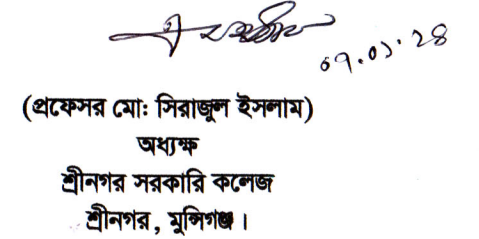 ০৭.০১.২৪
(প্রফেসর মো: সিরাজুল ইসলাম)
অধ্যক্ষ
শ্রীনগর সরকারি কলেজ
শ্রীনগর, মুন্সিগঞ্জ।